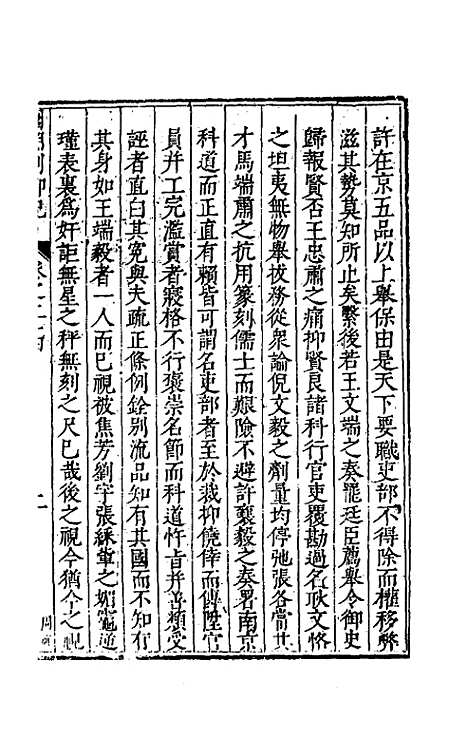 許在京五品以上舉保由是天下要職吏部不得除而權移弊
滋其勢莫知所止矣繫後若王文端之奏罷廷臣薦舉令御史
歸報賢否王忠肅之痛抑賢良諸科行官吏覆勘過名耿文恪
之坦夷無物舉拔務從衆論倪文毅之劑量均停弛張各當其
才馬端肅之抗用篆刻儒士而艱險不避許襄毅之奏署南京
科道而正直有賴皆可謂名吏部者至於裁抑僥倖而傳陞官
員并工完濫賞者寢格不行褒崇名節而科道忤旨并善類受
誣者直白其冤與夫疏正條例銓别流品知有其國而不知有
其身如王端毅者一人而已視被焦芳劉宇張綵輩之媚竈逆
瑾表裏爲奸詎無星之秤無刻之尺已哉後之視今猶今之視